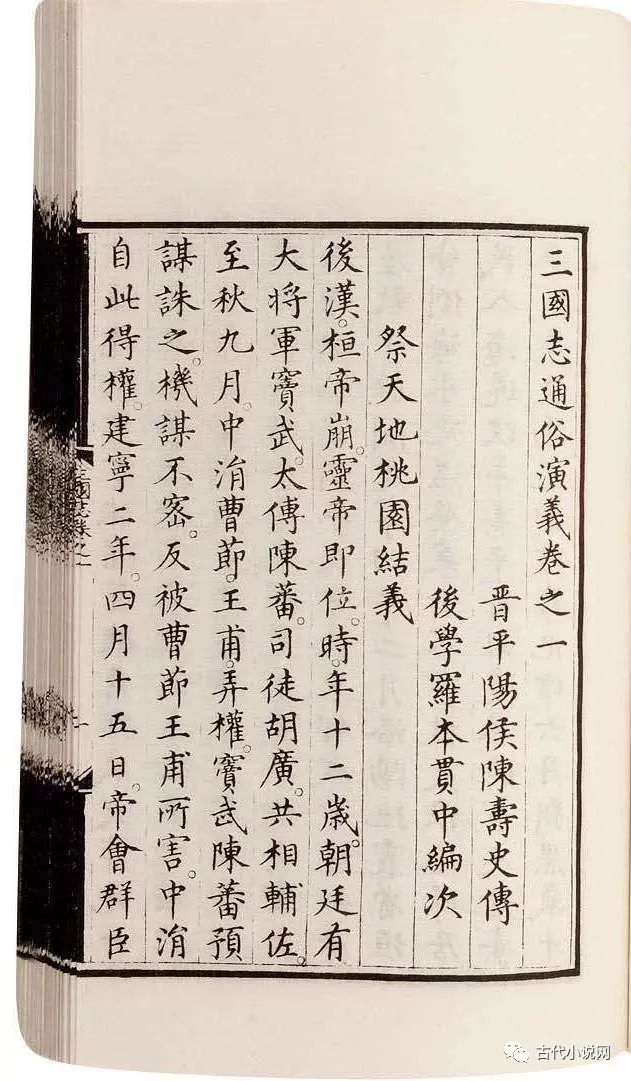 三國志通俗演義卷之一
晋平陽侯陳壽史傳
後學羅本貫中編次
祭天地桃園結義
後漢。桓帝崩。靈帝即位。時年十二歲。朝廷有
大將軍竇武。太傅陳蕃。司徒胡廣。共相輔佐。
至秋九月。中涓曹節。王甫。弄權。竇武陳蕃預
謀誅之。機謀不密。反被曹節王甫所害。中涓
自此得權。建寧二年。四月十五日。帝會群臣
古代小说网